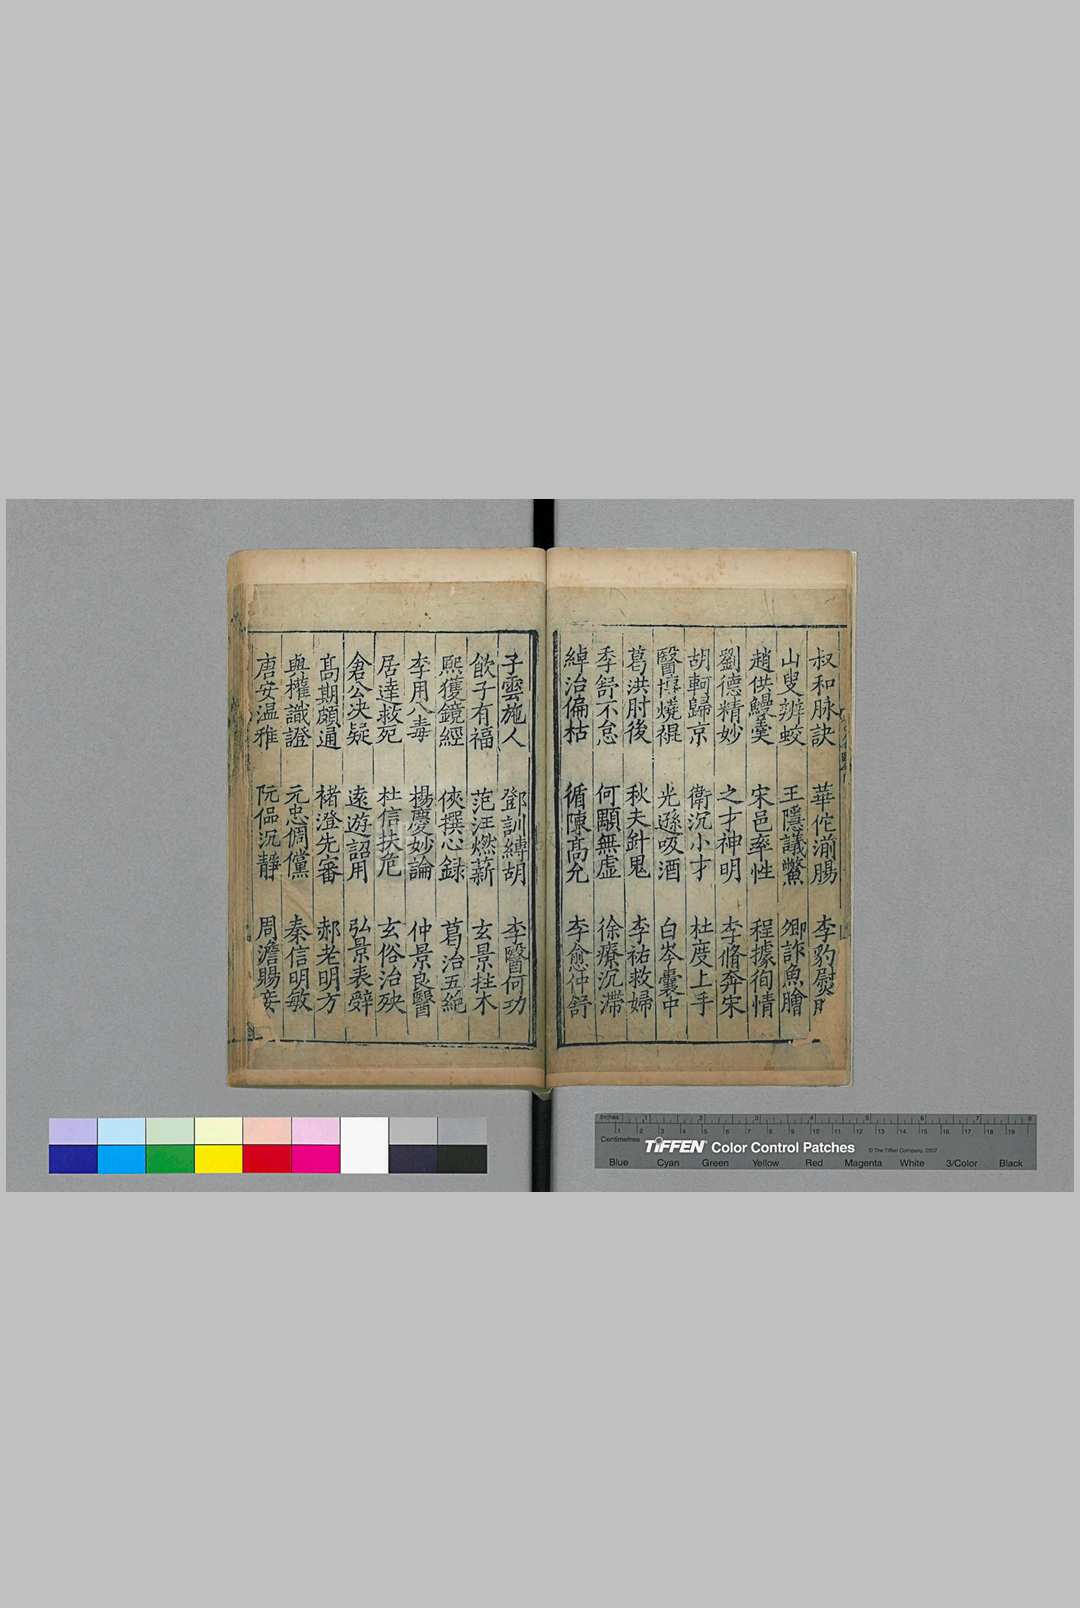 叔和脉訣 華佗湔腸 李豹熨
山叟辨蛟 王隱議鱉 卿詐魚膾
趙供鰻羹 宋邑率性 程據徇情
劉德精妙 之才神明 李脩奔宋
胡軻歸京 衛沉小才 杜度上手
醫博燒裩 光遜吸酒 白岑囊中
葛洪肘後 秋夫針鬼 李祐救婦
季舒不怠 何顒無虛 徐療沉滯
綽治偏枯 循陳高允 李愈仲舒
子雲施人 鄧訓縛胡 李醫何功
飲子有福 范汪燃薪 玄景拄木
熙獲鏡經 俠撰心録 葛治五絕
李用八毒 楊慶妙論 仲景良醫
居達救死 杜信扶危 玄俗治殃
倉公决疑 遠遊詔用 弘景表辭
髙期頗通 褚澄先審 郝老明方
與權識證 元忠倜儻 秦信明敏
唐安温雅 阮偘沉靜 周澹賜妾
Inches 1 2 3 4 5 6 7 8
1 2 3 4 5 6 7 8 9 10 11 12 13 14 15 16 17 18 19
Centimetres
TIFFEN Color Control Patches © The Tiffen Company, 2007
Blue Cyan Green Yellow Red Magenta White 3/Color Black